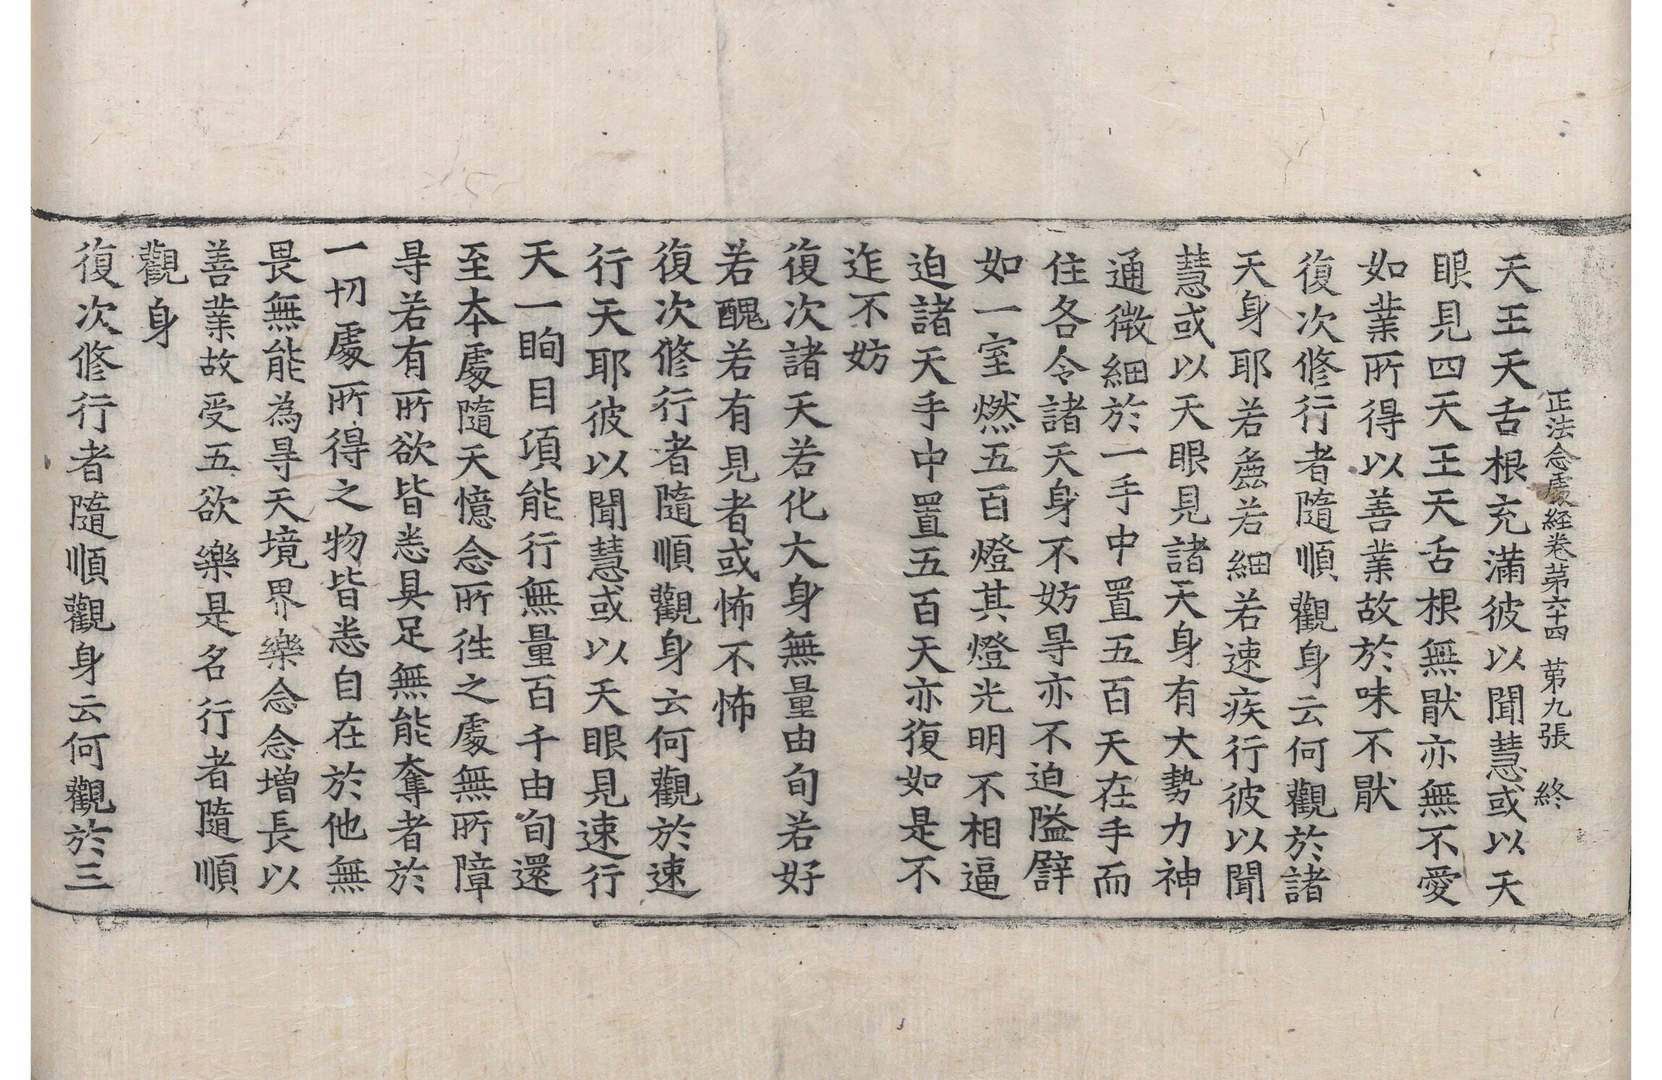 正法念處経卷第六十四 第九張 終
天王天舌根充滿彼以聞慧或以天
眼見四天王天舌根無猒亦無不愛
如業所得以善業故於味不猒
復次修行者隨順觀身云何觀於諸
天身耶若麁若細若速疾行彼以聞
慧或以天眼見諸天身有大勢力神
通微細於一手中置五百天在手而
住各令諸天身不妨㝵亦不迫隘譬
如一室燃五百燈其燈光明不相逼
迫諸天手中置五百天亦復如是不
迮不妨
復次諸天若化大身無量由旬若好
若醜若有見者或怖不怖
復次修行者隨順觀身云何觀於速
行天耶彼以聞慧或以天眼見速行
天一眴目項能行無量百千由旬還
至本處隨天憶念所徃之處無所障
㝵若有所欲皆悉具足無能奪者於
一切處所得之物皆悉自在於他無
畏無能為㝵天境界樂念念增長以
善業故受五欲樂是名行者隨順
觀身
復次修行者隨順觀身云何觀於三